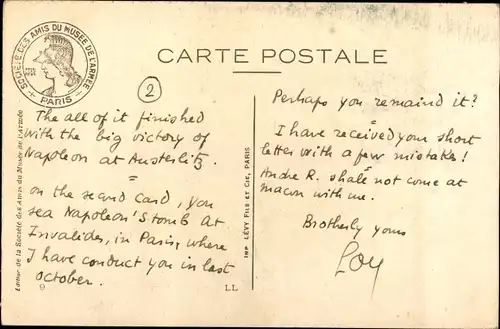 SOCIÉTÉ DES AMIS DU MUSÉE DE L'ARMÉE
PARIS
CARTE POSTALE
2
The all of it finished
with the big victory of
Napoleon at Austerlitz.
=
on the second card, you
sea Napoleon's tomb at
Invalides, in Paris, where
I have conduct you in last
october.
Editeur de la Société des Amis du Musée de l'Armée
9
LL
IMP. LÉVY FILS ET CIE, PARIS
Perhaps you remaind it?
=
I have received your short
letter with a few mistakes!
Andre R. shall not come at
macon with me.
Brotherly yours
Loy